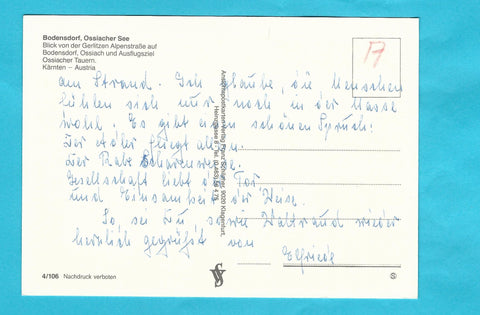 Bodensdorf, Ossiacher See
Blick von der Gerlitzen Alpenstraße auf
Bodensdorf, Ossiach und Ausflugsziel
Ossiacher Tauern.
Kärnten – Austria
am Strand. Ich glaube, die Menschen
fühlen sich nur noch in der Masse
wohl. Es gibt einen schönen Spruch:
Der Adler fliegt allein.
Der Rabe Scharenweise.
Gesellschaft liebt der Tor,
und Einsamkeit der Weise.
So sei Du sowie Waltraud wieder
herzlich gegrüßt von
Elfriede
4/106 Nachdruck verboten